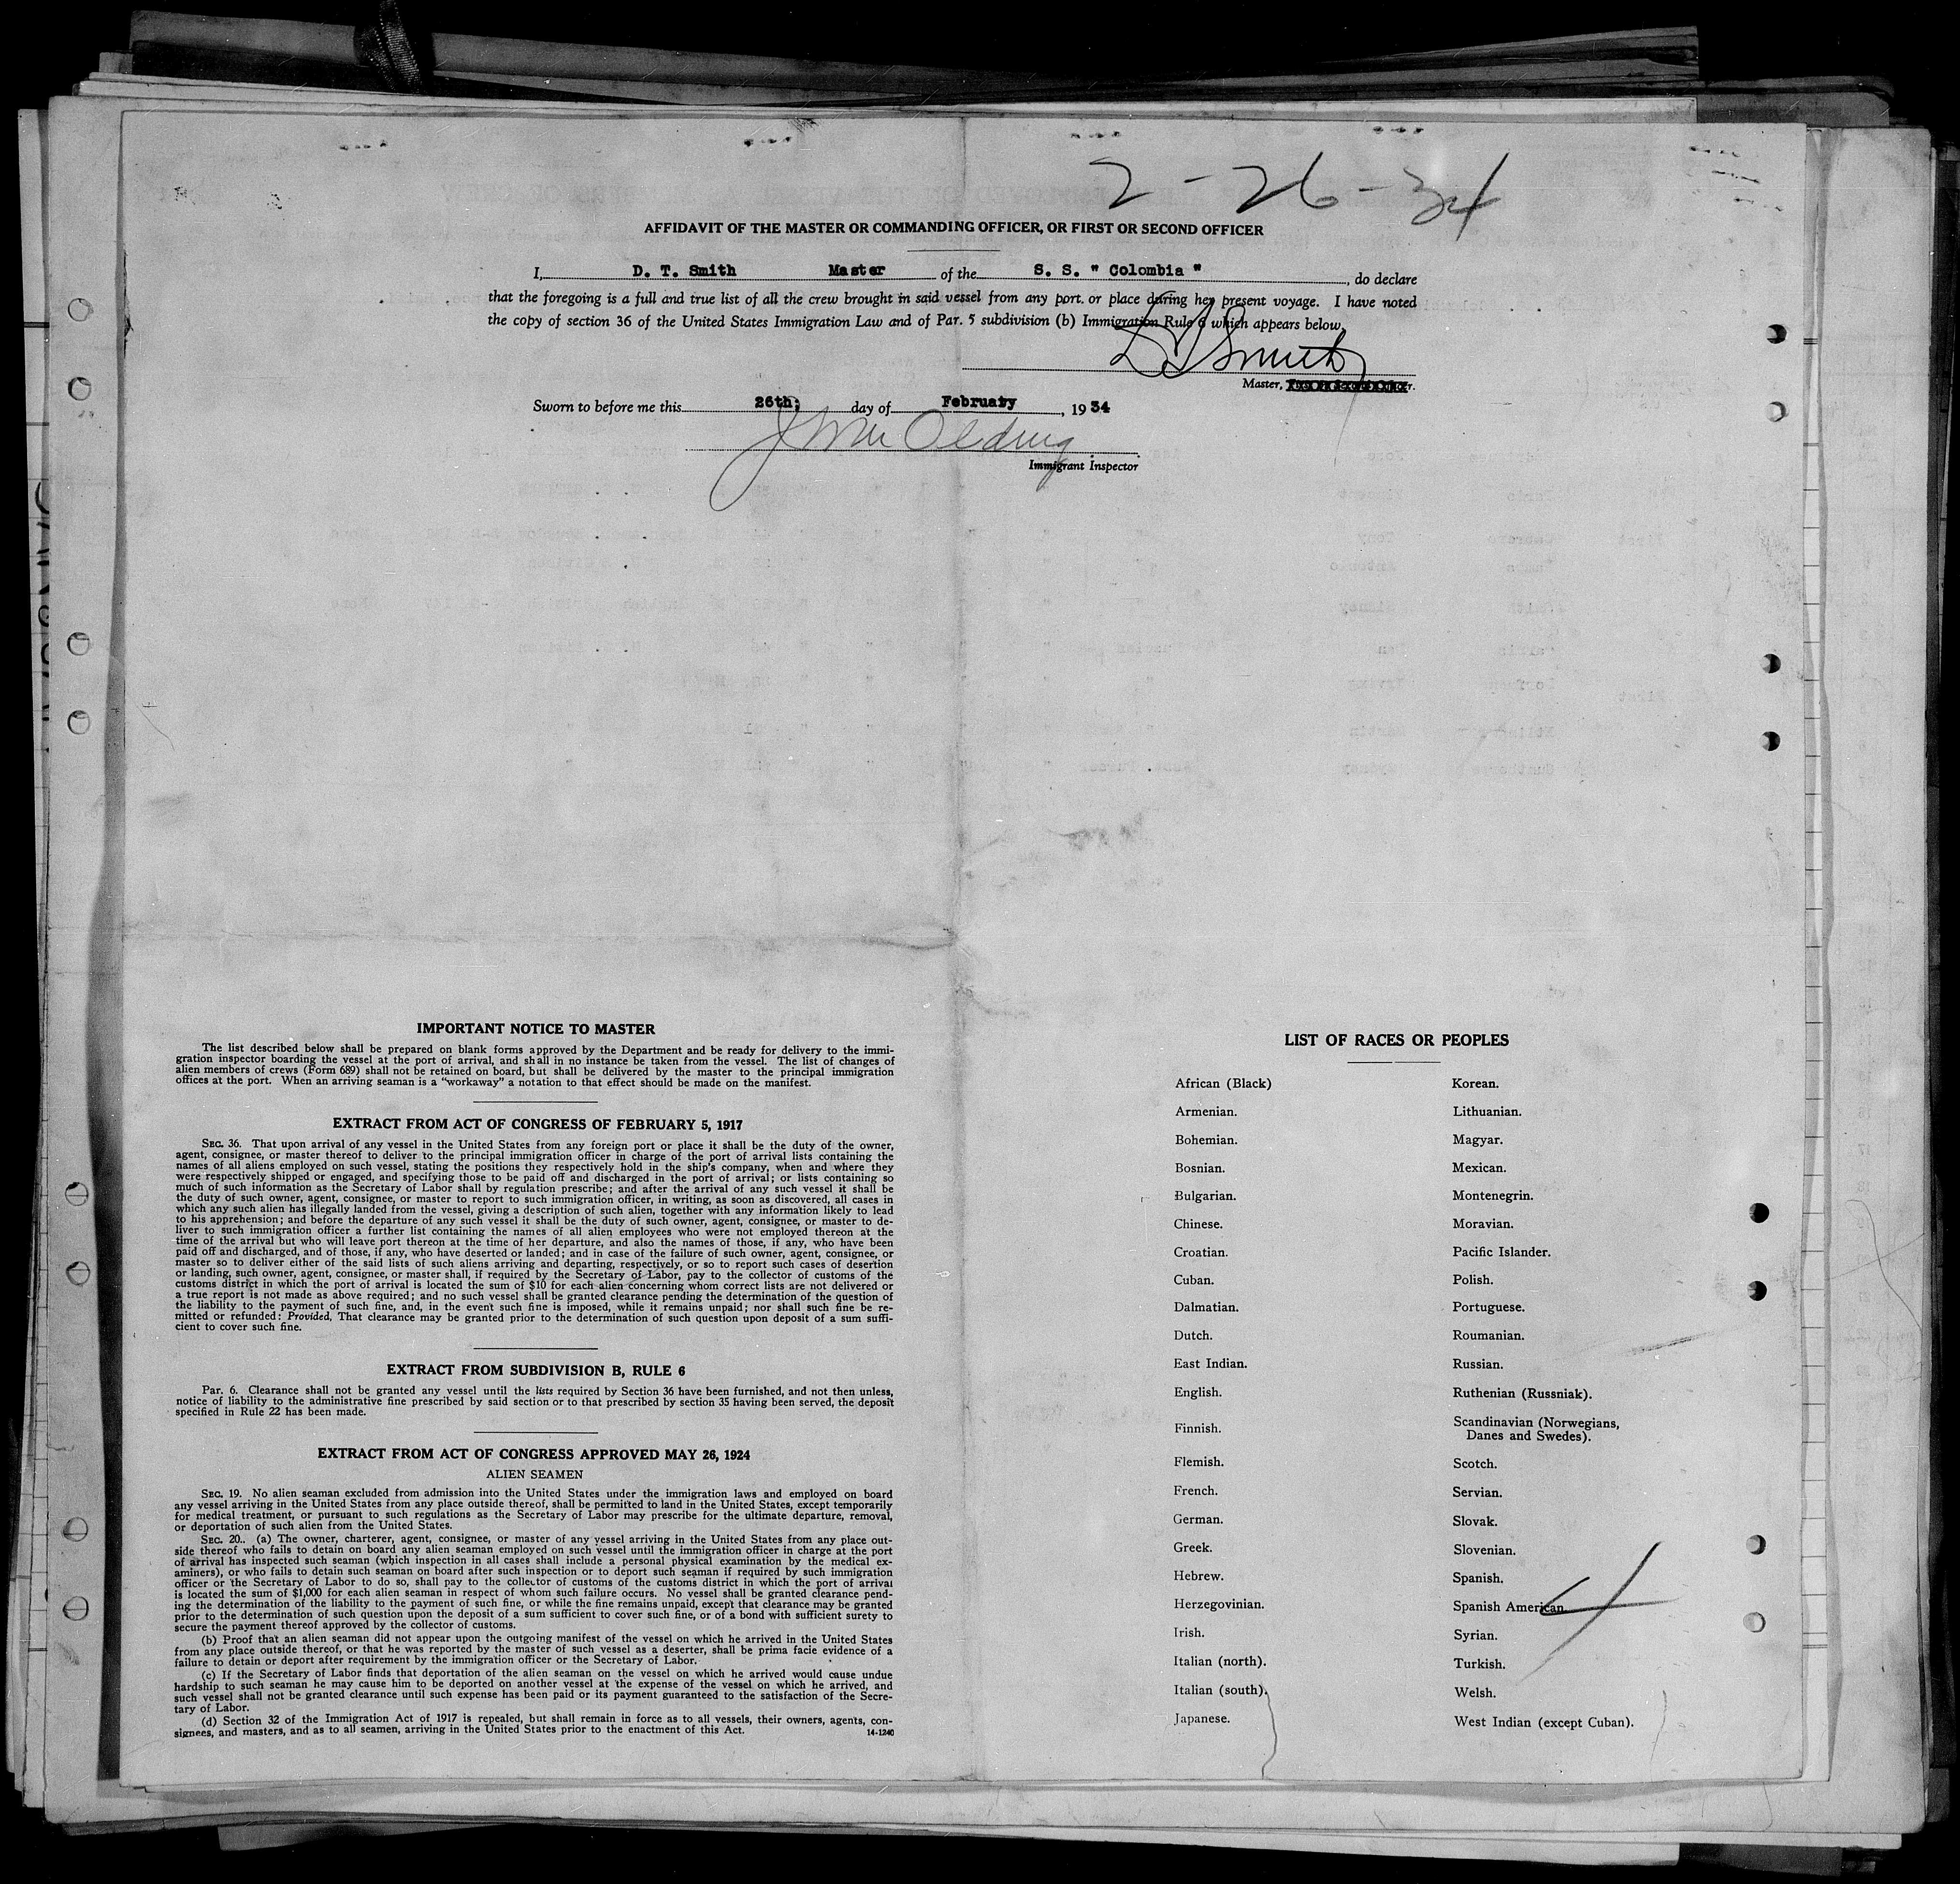 2-26-34
AFFIDAVIT OF THE MASTER OR COMMANDING OFFICER, OR FIRST OR SECOND OFFICER
I, D. T. Smith Master of the S. S. " Colombia ", do declare
that the foregoing is a full and true list of all the crew brought in said vessel from any port. or place during her present voyage. I have noted
the copy of section 36 of the United States Immigration Law and of Par. 5 subdivision (b) Immigration Rule 6 which appears below.
D T Smith
Master,
Sworn to before me this 26th; day of February, 1934
Immigrant Inspector
IMPORTANT NOTICE TO MASTER
The list described below shall be prepared on blank forms approved by the Department and be ready for delivery to the immi-
gration inspector boarding the vessel at the port of arrival, and shall in no instance be taken from the vessel. The list of changes of
alien members of crews (Form 689) shall not be retained on board, but shall be delivered by the master to the principal immigration
offices at the port. When an arriving seaman is a "workaway" a notation to that effect should be made on the manifest.
EXTRACT FROM ACT OF CONGRESS OF FEBRUARY 5, 1917
SEC. 36. That upon arrival of any vessel in the United States from any foreign port or place it shall be the duty of the owner,
agent, consignee, or master thereof to deliver to the principal immigration officer in charge of the port of arrival lists containing the
names of all aliens employed on such vessel, stating the positions they respectively hold in the ship's company, when and where they
were respectively shipped or engaged, and specifying those to be paid off and discharged in the port of arrival; or lists containing so
much of such information as the Secretary of Labor shall by regulation prescribe; and after the arrival of any such vessel it shall be
the duty of such owner, agent, consignee, or master to report to such immigration officer, in writing, as soon as discovered, all cases in
which any such alien has illegally landed from the vessel, giving a description of such alien, together with any information likely to lead
to his apprehension; and before the departure of any such vessel it shall be the duty of such owner, agent, consignee, or master to de-
liver to such immigration officer a further list containing the names of all alien employees who were not employed thereon at the
time of the arrival but who will leave port thereon at the time of her departure, and also the names of those, if any, who have been
paid off and discharged, and of those, if any, who have deserted or landed; and in case of the failure of such owner, agent, consignee, or
master so to deliver either of the said lists of such aliens arriving and departing, respectively, or so to report such cases of desertion
or landing, such owner, agent, consignee, or master shall, if required by the Secretary of Labor, pay to the collector of customs of the
customs district in which the port of arrival is located the sum of $10 for each alien concerning whom correct lists are not delivered or
a true report is not made as above required; and no such vessel shall be granted clearance pending the determination of the question of
the liability to the payment of such fine, and, in the event such fine is imposed, while it remains unpaid; nor shall such fine be re-
mitted or refunded: Provided, That clearance may be granted prior to the determination of such question upon deposit of a sum suffi-
cient to cover such fine.
EXTRACT FROM SUBDIVISION B, RULE 6
Par. 6. Clearance shall not be granted any vessel until the lists required by Section 36 have been furnished, and not then unless,
notice of liability to the administrative fine prescribed by said section or to that prescribed by section 35 having been served, the deposit
specified in Rule 22 has been made.
EXTRACT FROM ACT OF CONGRESS APPROVED MAY 26, 1924
ALIEN SEAMEN
SEC. 19. No alien seaman excluded from admission into the United States under the immigration laws and employed on board
any vessel arriving in the United States from any place outside thereof, shall be permitted to land in the United States, except temporarily
for medical treatment, or pursuant to such regulations as the Secretary of Labor may prescribe for the ultimate departure, removal,
or deportation of such alien from the United States.
SEC. 20.. (a) The owner, charterer, agent, consignee, or master of any vessel arriving in the United States from any place out-
side thereof who fails to detain on board any alien seaman employed on such vessel until the immigration officer in charge at the port
of arrival has inspected such seaman (which inspection in all cases shall include a personal physical examination by the medical ex-
aminers), or who fails to detain such seaman on board after such inspection or to deport such seaman if required by such immigration
officer or the Secretary of Labor to do so, shall pay to the collector of customs of the customs district in which the port of arrival
is located the sum of $1,000 for each alien seaman in respect of whom such failure occurs. No vessel shall be granted clearance pend-
ing the determination of the liability to the payment of such fine, or while the fine remains unpaid, except that clearance may be granted
prior to the determination of such question upon the deposit of a sum sufficient to cover such fine, or of a bond with sufficient surety to
secure the payment thereof approved by the collector of customs.
(b) Proof that an alien seaman did not appear upon the outgoing manifest of the vessel on which he arrived in the United States
from any place outside thereof, or that he was reported by the master of such vessel as a deserter, shall be prima facie evidence of a
failure to detain or deport after requirement by the immigration officer or the Secretary of Labor.
(c) If the Secretary of Labor finds that deportation of the alien seaman on the vessel on which he arrived would cause undue
hardship to such seaman he may cause him to be deported on another vessel at the expense of the vessel on which he arrived, and
such vessel shall not be granted clearance until such expense has been paid or its payment guaranteed to the satisfaction of the Secre-
tary of Labor.
(d) Section 32 of the Immigration Act of 1917 is repealed, but shall remain in force as to all vessels, their owners, agents, con-
signees, and masters, and as to all seamen, arriving in the United States prior to the enactment of this Act.
14-1240
LIST OF RACES OR PEOPLES
African (Black)
Armenian.
Bohemian.
Bosnian.
Bulgarian.
Chinese.
Croatian.
Cuban.
Dalmatian.
Dutch.
East Indian.
English.
Finnish.
Flemish.
French.
German.
Greek.
Hebrew.
Herzegovinian.
Irish.
Italian (north).
Italian (south).
Japanese.
Korean.
Lithuanian.
Magyar.
Mexican.
Montenegrin.
Moravian.
Pacific Islander.
Polish.
Portuguese.
Roumanian.
Russian.
Ruthenian (Russniak).
Scandinavian (Norwegians,
Danes and Swedes).
Scotch.
Servian.
Slovak.
Slovenian.
Spanish.
Spanish American.
Syrian.
Turkish.
Welsh.
West Indian (except Cuban).